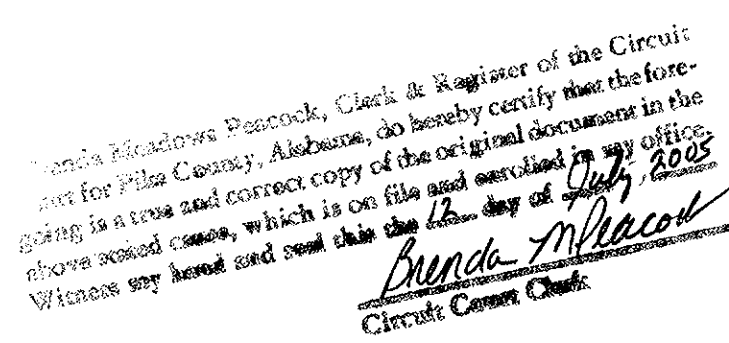 enda Meadows Peacock, Clerk & Register of the Circuit
urt for Pike County, Alabama, do hereby certify that the fore-
going is a true and correct copy of the original document in the
above stated cause, which is on file and enrolled in my office.
Witness my hand and seal this the 12 day of July, 2005
Brenda M Peacock
Circuit Court Clerk